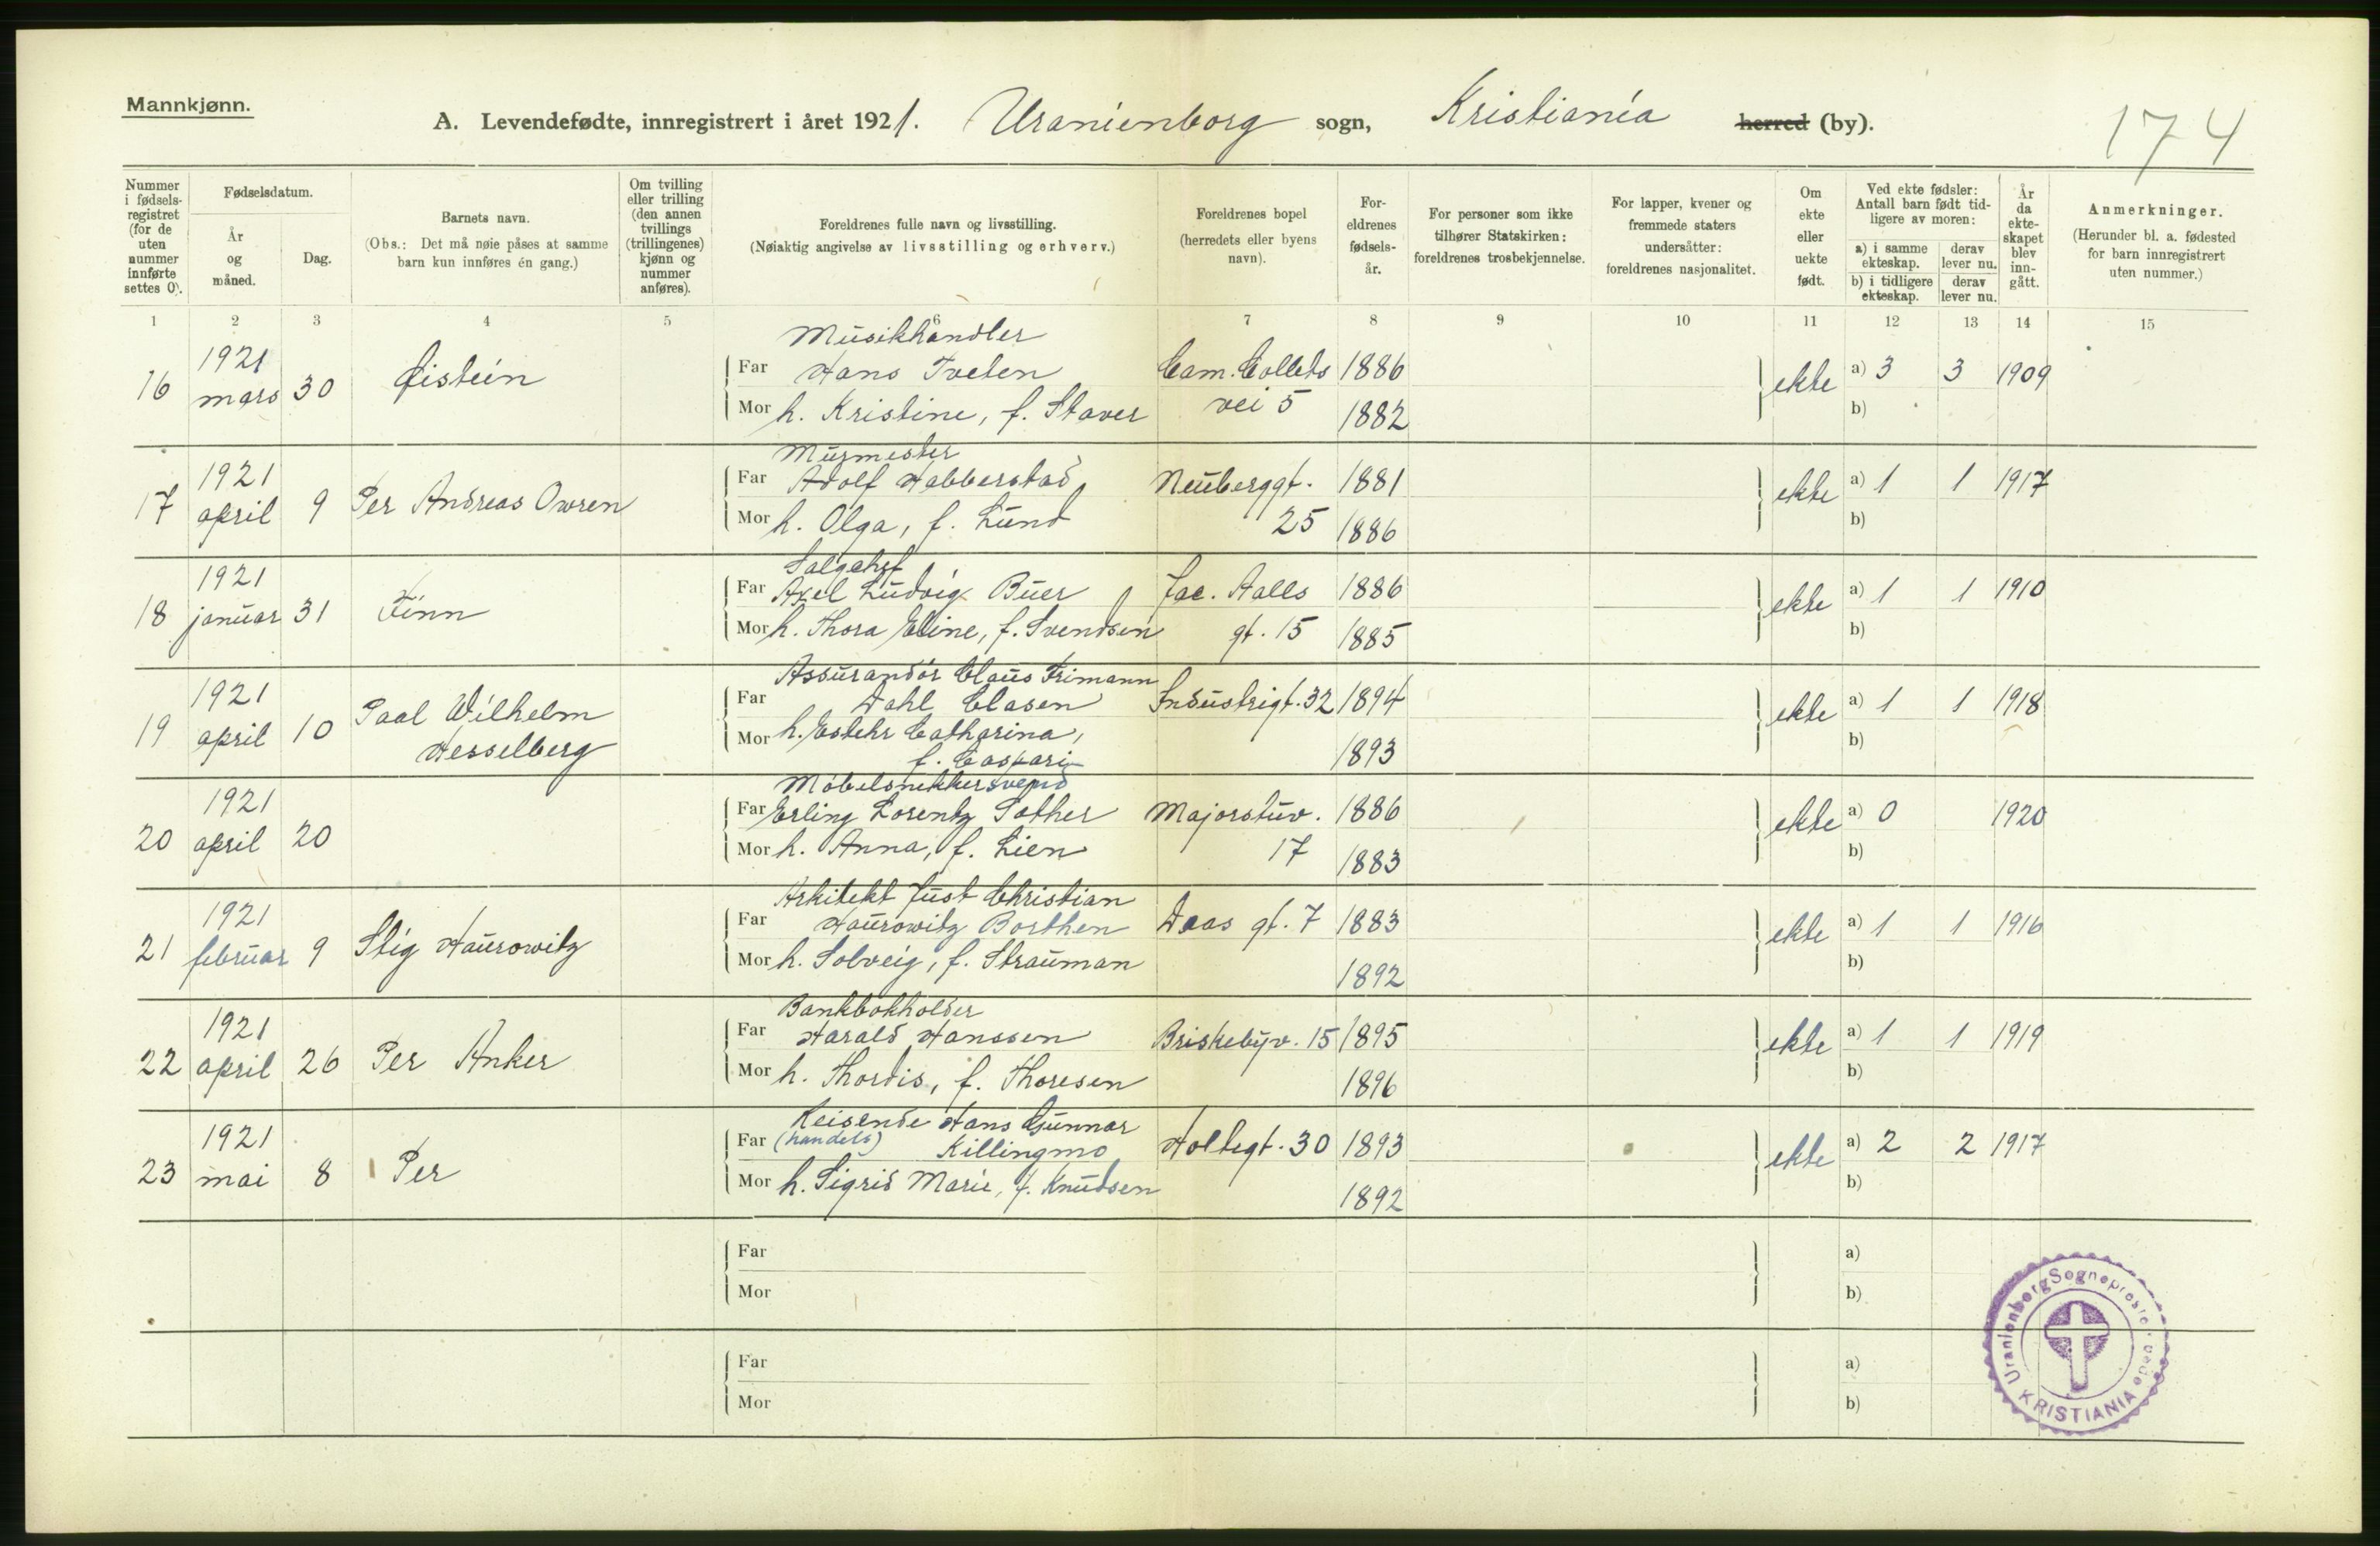 Mannkjønn.
A. Levendefødte, innregistrert i året 1921. Uranienborg sogn, Kristiania herred (by).
174
Nummer i fødsels-registret (for de uten nummer innførte settes 0).
Fødselsdatum.
År og måned.
Dag.
Barnets navn.
(Obs.: Det må nøie påses at samme barn kun innføres én gang.)
Om tvilling eller trilling (den annen tvillings (trillingenes) kjønn og nummer anføres).
Foreldrenes fulle navn og livsstilling.
(Nøiaktig angivelse av livsstilling og erhverv.)
Foreldrenes bopel (herredets eller byens navn).
For-eldrenes fødsels-år.
For personer som ikke tilhører Statskirken: foreldrenes trosbekjennelse.
For lapper, kvener og fremmede staters undersåtter: foreldrenes nasjonalitet.
Om ekte eller uekte født.
Ved ekte fødsler: Antall barn født tid-ligere av moren:
a) i samme ekteskap.
derav lever nu.
b) i tidligere ekteskap.
derav lever nu.
År da ekte-skapet blev inn-gått.
Anmerkninger.
(Herunder bl. a. fødested for barn innregistrert uten nummer.)
1 2 3 4 5 6 7 8 9 10 11 12 13 14 15
Musikhandler
1921 Far Hans Tveten Cam. Colletts 1886 a) 3 3 1909
16 mars 30 Øistein Mor h. Kristine, f. Staver vei 5 1882 ekte b)
Murmester
1921 Far Adolf Habberstad Neuberggt. 1881 a) 1 1 1917
17 april 9 Per Andreas Owren Mor h. Olga, f. Lund 25 1886 ekte b)
Salgchef
1921 Far Axel Ludvig Buer Jac. Aalls 1886 a) 1 1 1910
18 januar 31 Finn Mor h. Thora Eline, f. Svendsen gt. 15 1885 ekte b)
Assurandör Claus Frimann
1921 Far Dahl Clasen Industrigt. 32 1894 a) 1 1 1918
19 april 10 Paal Wilhelm Mor h. Estehr Catharina, ekte b)
Hesselberg f. Caspari 1893
Möbelsnekkersvend
1921 Far Erling Lorentz Sother Majorstuv. 1886 a) 0 1920
20 april 20 Mor h. Anna, f. Lien 17 1883 ekte b)
Arkitekt Just Christian
1921 Far Haurowitz Borthen Daas gt. 7 1883 a) 1 1 1916
21 februar 9 Stig Haurowitz Mor h. Solveig, f. Strauman 1892 ekte b)
Bankbokholder
1921 Far Harald Hanssen Briskebyv. 15 1895 a) 1 1 1919
22 april 26 Per Anker Mor h. Thordis, f. Thoresen 1896 ekte b)
Reisende Hans Gunnar
1921 Far (handels) Killingmo Holtegt. 30 1893 a) 2 2 1917
23 mai 8 Per Mor h. Sigrid Marie, f. Knudsen 1892 ekte b)
Far a)
Mor b)
Far a)
Mor b)
Uranienborg Sogneprest
KRISTIANIA